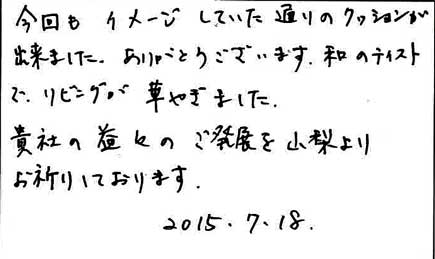 今回も イメージ していた 通りのクッションが
出来ました。ありがとうございます。和のテイスト
で、リビングが 華やぎました。
貴社の益々の ご発展を 山梨より
お祈りしております。
2015.7.18.